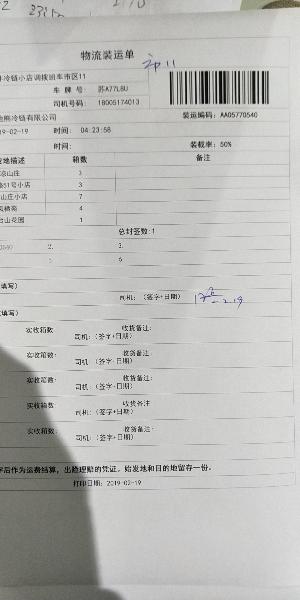 物流装运单
冷链小店调拨班车市区11
车牌号: 苏A77L8U
司机号码: 18005174013
冷链有限公司
装运编码: AA05770540
19-02-19 时间: 04:23:58
时间: 装载率: 50%
地描述 箱数 备注
山庄 3
51号小店 3
山庄小店 7
4
台山花园 1
总封签数:1
0540 2. 3.
5 6
填写)
司机: (签字+日期)
填写)
实收箱数: 收货备注:
司机: (签字+日期)
实收箱数: 收货备注:
司机: (签字+日期)
实收箱数: 收货备注:
司机: (签字+日期)
实收箱数: 收货备注
司机: (签字+日期)
实收箱数: 收货备注:
司机: (签字+日期)
字后作为运费结算，出险理赔的凭证。始发地和目的地留存一份。
打印日期: 2019-02-19